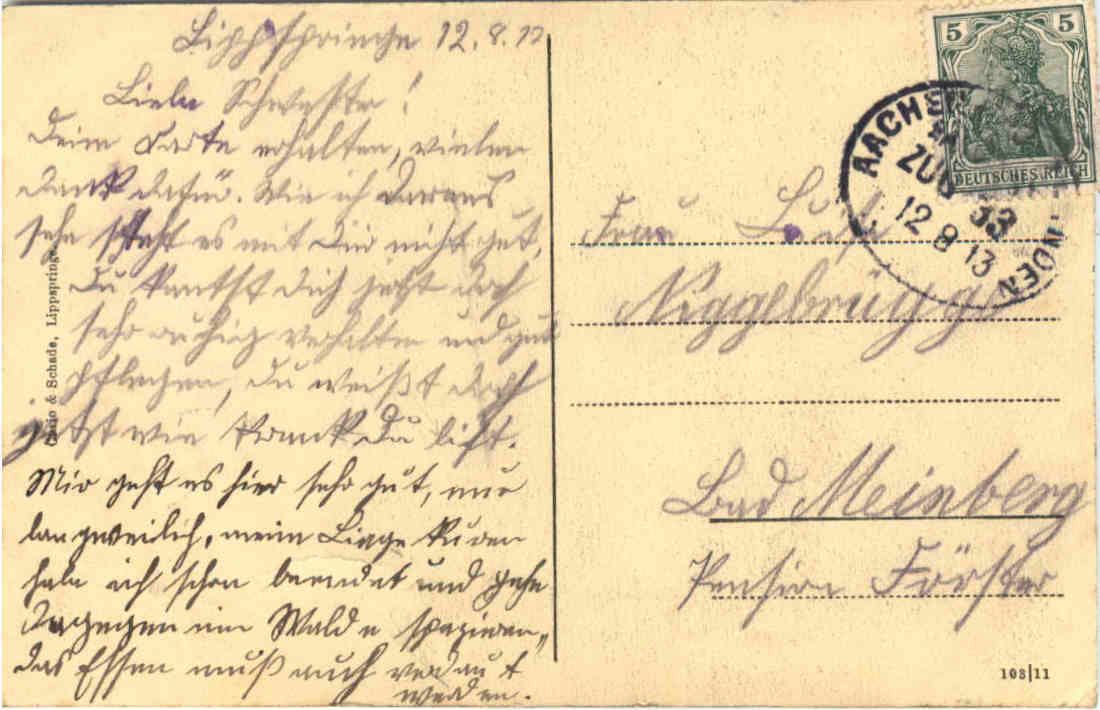 Lippspringe 12.8.13
Liebe Schwester!
Deine Karte erhalten, vielen
Dank dafür. Wie ich daraus
sehe steht es mit Dir nicht gut,
Du kannst Dich jetzt doch
sehr ruhig verhalten und gut
pflegen, Du weißt doch
jetzt wie krank Du bist.
Mir geht es hier sehr gut, nur
langweilig, meine Liege Kuren
habe ich schon beendet und gehe
dagegen im Walde spazieren,
das Essen muß auch verdaut
werden.
& Schade, Lippspringe
5 5
DEUTSCHES REICH
AACHEN
ZUG 33
12 8 13
Frau
Niggebrügge
Bad Meinberg
Pension Förster
108|11